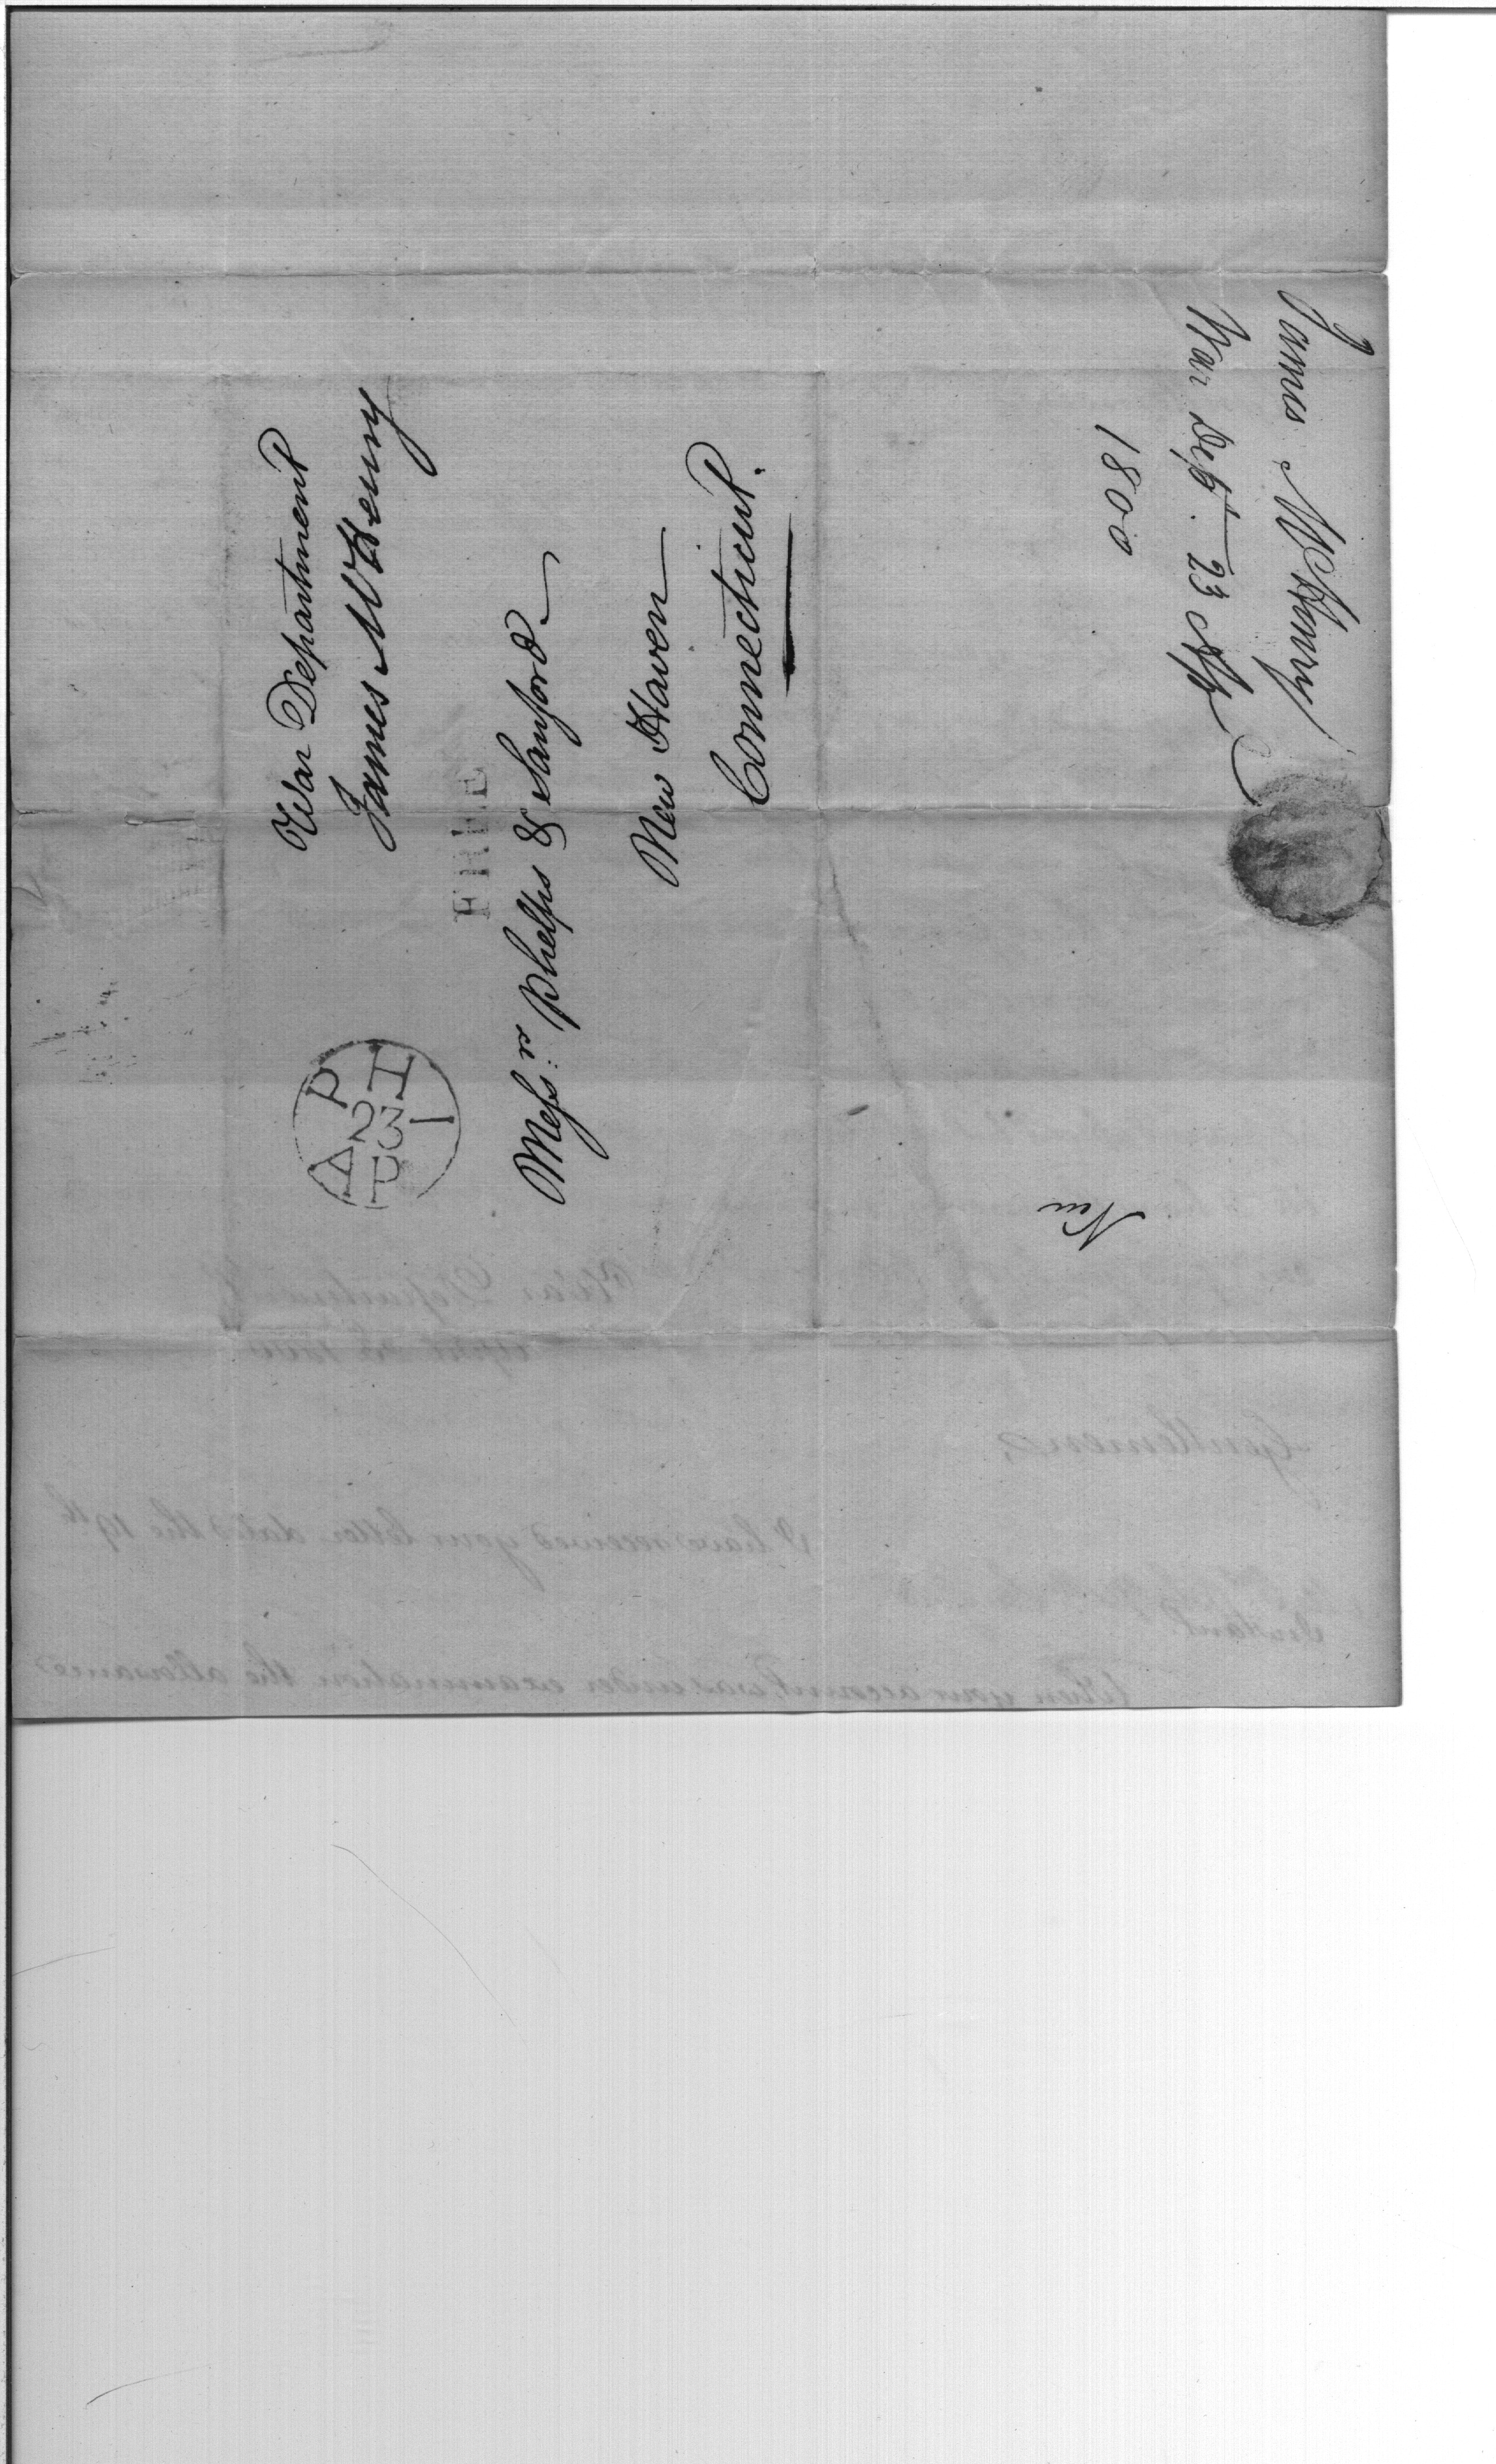 War Department
James McHenry
FREE
PHI
23
AP
Messrs. Phelps & Sanford
New Haven
Connecticut.
James McHenry
War Dept. 23d Ap
1800
New
War Department
April 23 1800
Gentlemen,
I have received your letter dated the 19th
Instant.
When your account was under examination the allowance